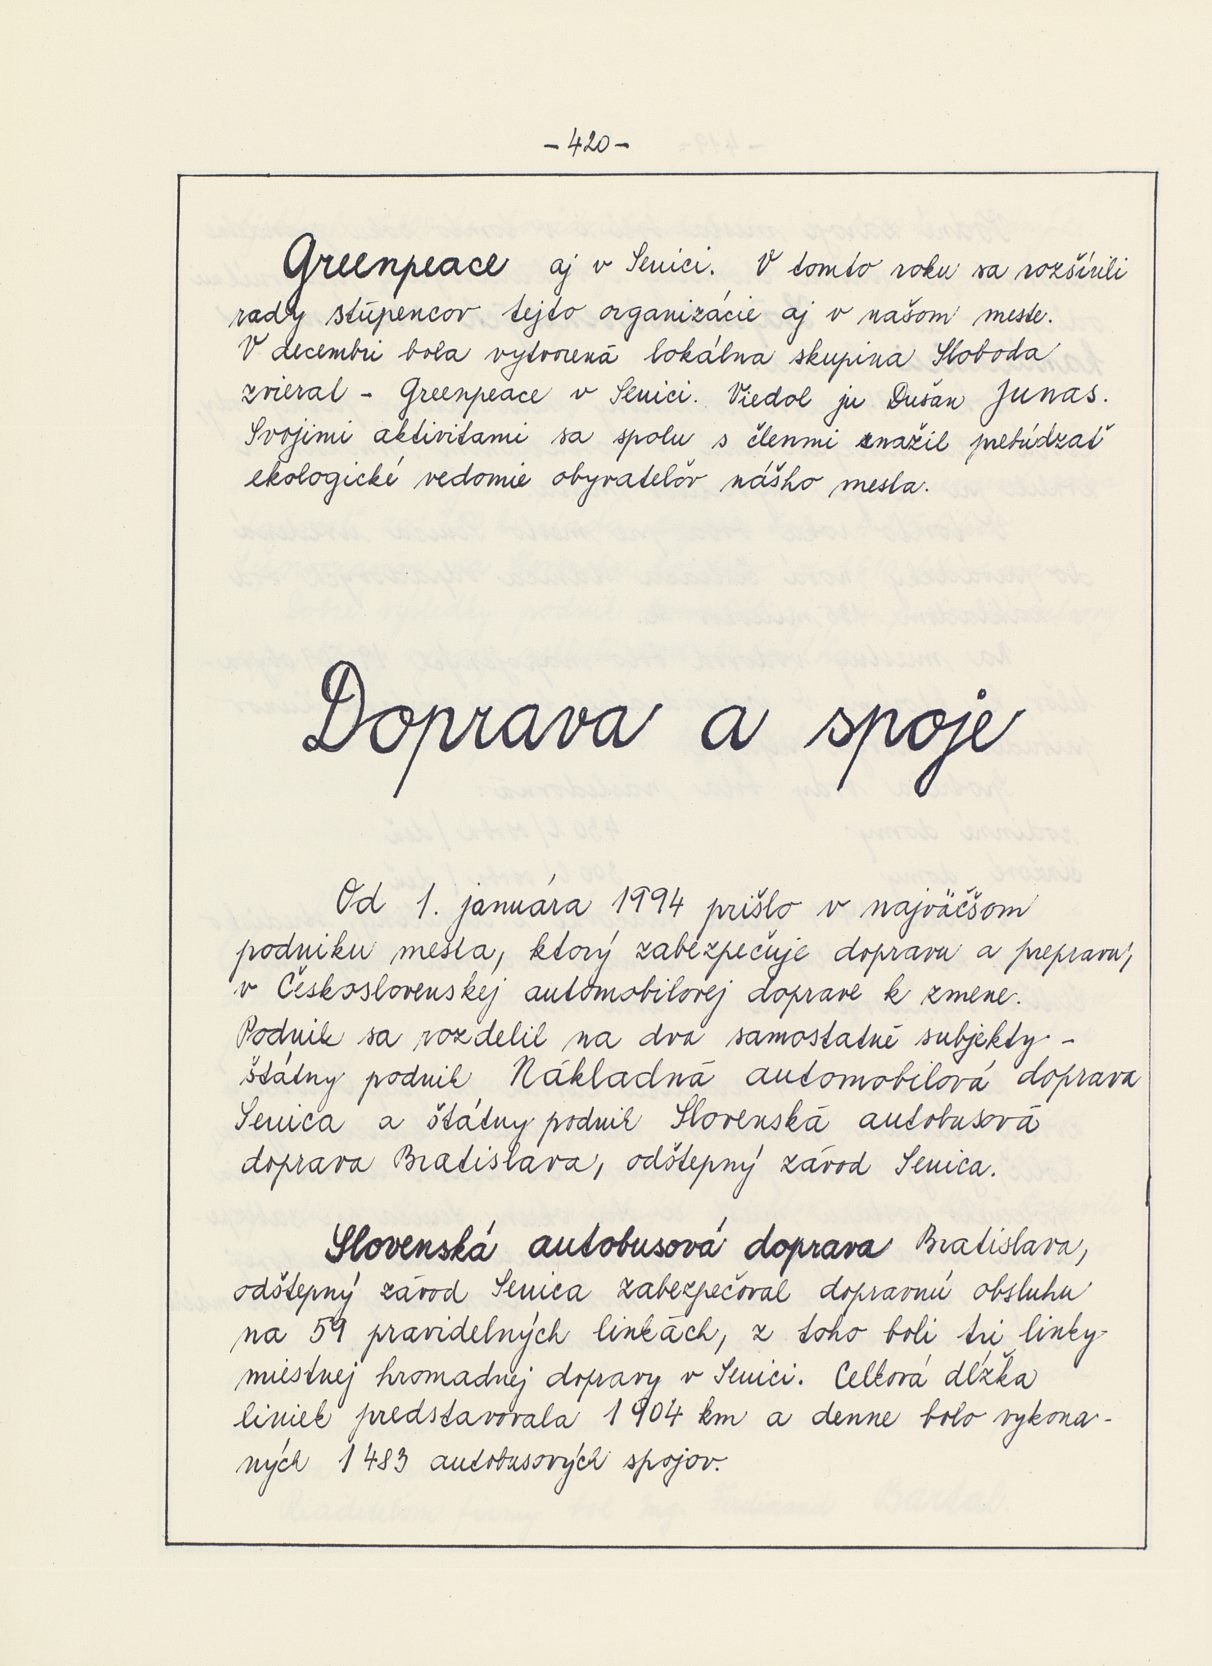 - 420 -
Greenpeace aj v Senici. V tomto roku sa rozšírili
rady stúpencov tejto organizácie aj v našom meste.
V decembri bola vytvorená lokálna skupina Sloboda
zvierat - Greenpeace v Senici. Viedol ju Dušan Junas.
Svojimi aktivitami sa spolu s členmi snažil prebúdzať
ekologické vedomie obyvateľov nášho mesta.
Doprava a spoje
Od 1. januára 1994 prišlo v najväčšom
podniku mesta, ktorý zabezpečuje dopravu a prepravu,
v Československej automobilovej doprave k zmene.
Podnik sa rozdelil na dva samostatné subjekty -
štátny podnik Nákladná automobilová doprava
Senica a štátny podnik Slovenská autobusová
doprava Bratislava, odštepný závod Senica.
Slovenská autobusová doprava Bratislava,
odštepný závod Senica zabezpečoval dopravnú obsluhu
na 59 pravidelných linkách, z toho boli tri linky
miestnej hromadnej dopravy v Senici. Celková dĺžka
liniek predstavovala 1 904 km a denne bolo vykona-
ných 1 483 autobusových spojov.